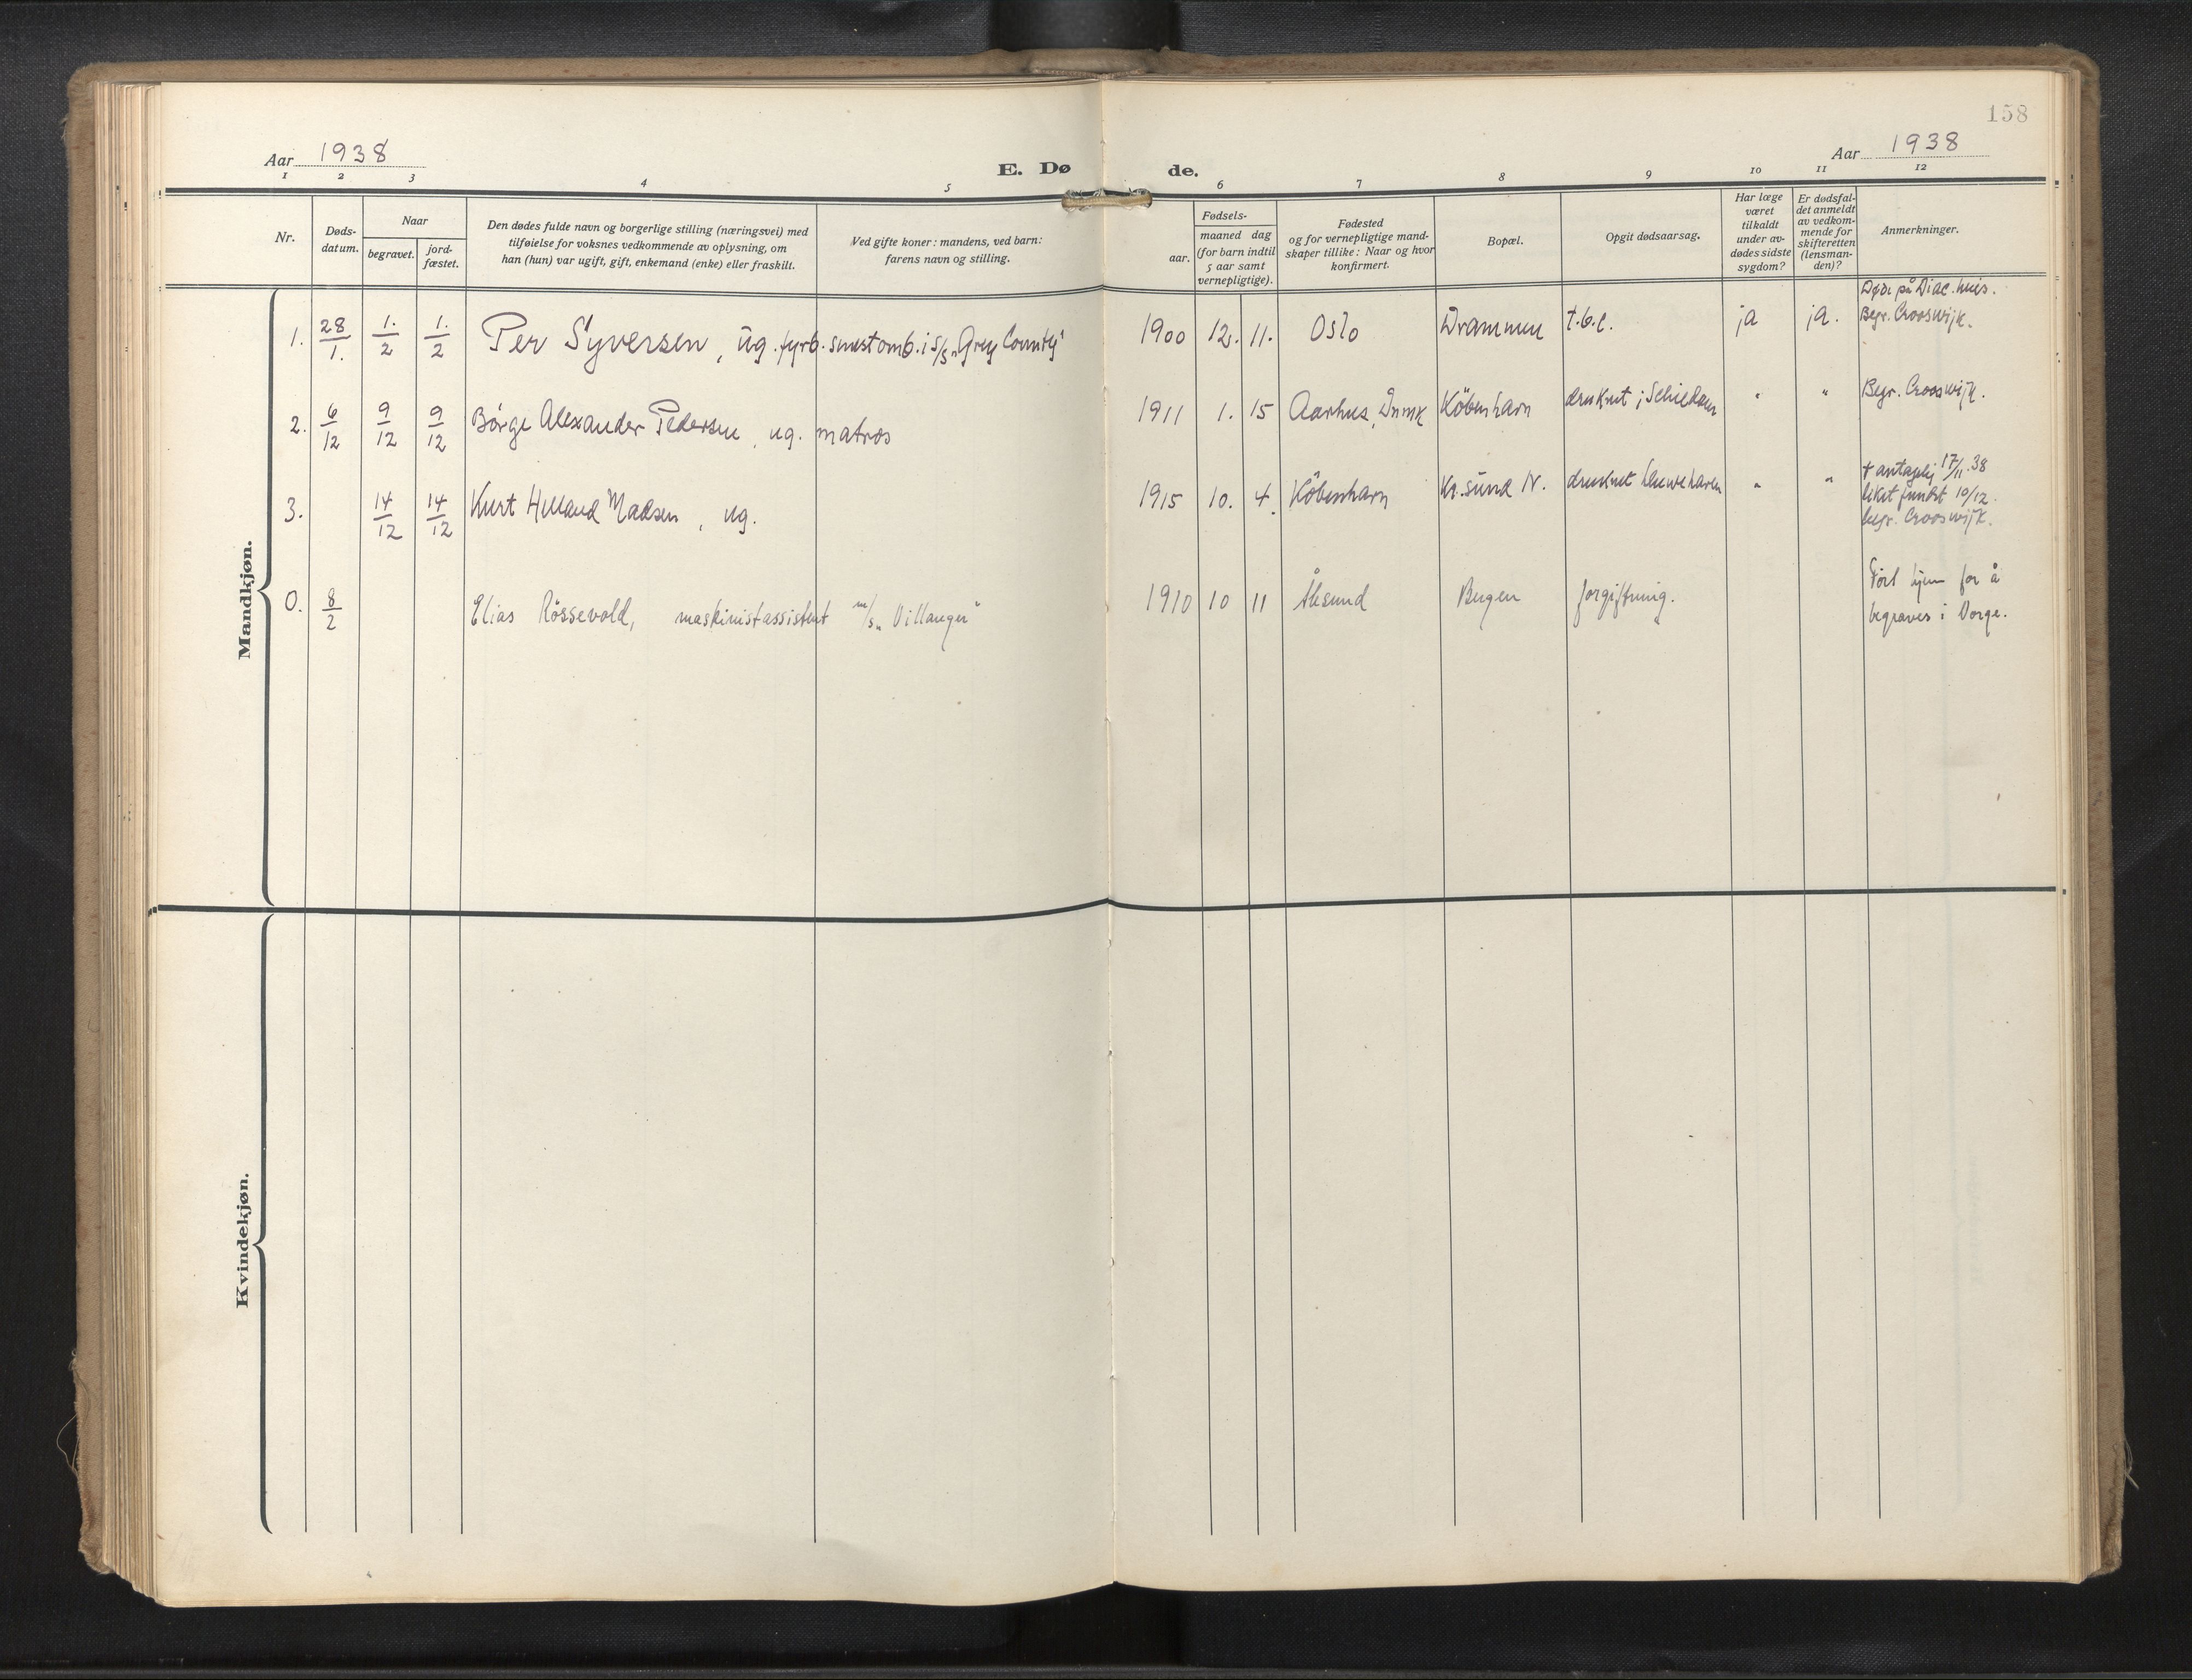 158
Aar 1938
E. Døde.
Aar 1938
1 2 3 4 5 6 7 8 9 10 11 12
Nr.
Døds-
datum.
Naar
begravet.
jord-
fæstet.
Den dødes fulde navn og borgerlige stilling (næringsvei) med
tilføielse for voksnes vedkommende av oplysning, om
han (hun) var ugift, gift, enkemand (enke) eller fraskilt.
Ved gifte koner: mandens, ved barn:
farens navn og stilling.
Fødsels-
aar.
maaned dag
(for barn indtil
5 aar samt
vernepligtige).
Fødested
og for vernepligtige mand-
skaper tillike: Naar og hvor
konfirmert.
Bopæl.
Opgit dødsaarsag.
Har læge
været
tilkaldt
under av-
dødes sidste
sygdom?
Er dødsfal-
det anmeldt
av vedkom-
mende for
skifteretten
(lensman-
den)?
Anmerkninger.
Mandkjøn.
1. 28/1. 1./2 1./2 Per Syversen, ug. fyrb. sinst omb. i S/S „Grey County" 1900 12. 11. Oslo Drammen t.b.c. ja ja.
Døde på Diac. huis.
Begr. Crooswijk.
2. 6/12 9/12 9/12 Børge Alexander Pedersen, ug. matros 1911 1. 15 Aarhus, Dnmk København druknet i Schiedam " " Begr. Crooswijk.
3. 14/12 14/12 Kurt Madsen, ug. 1915 10. 4. København Kr.sund N. druknet Leuwehaven " "
† antagelig 17/11.38
liket fundet 10/12.
begr. Crooswijk.
0. 8/2 Elias Røssevold, maskinistassistent m/s „Villanger" 1910 10 11 Ålesund Bergen forgiftning.
Ført hjem for å
begraves i Norge.
Kvindekjøn.